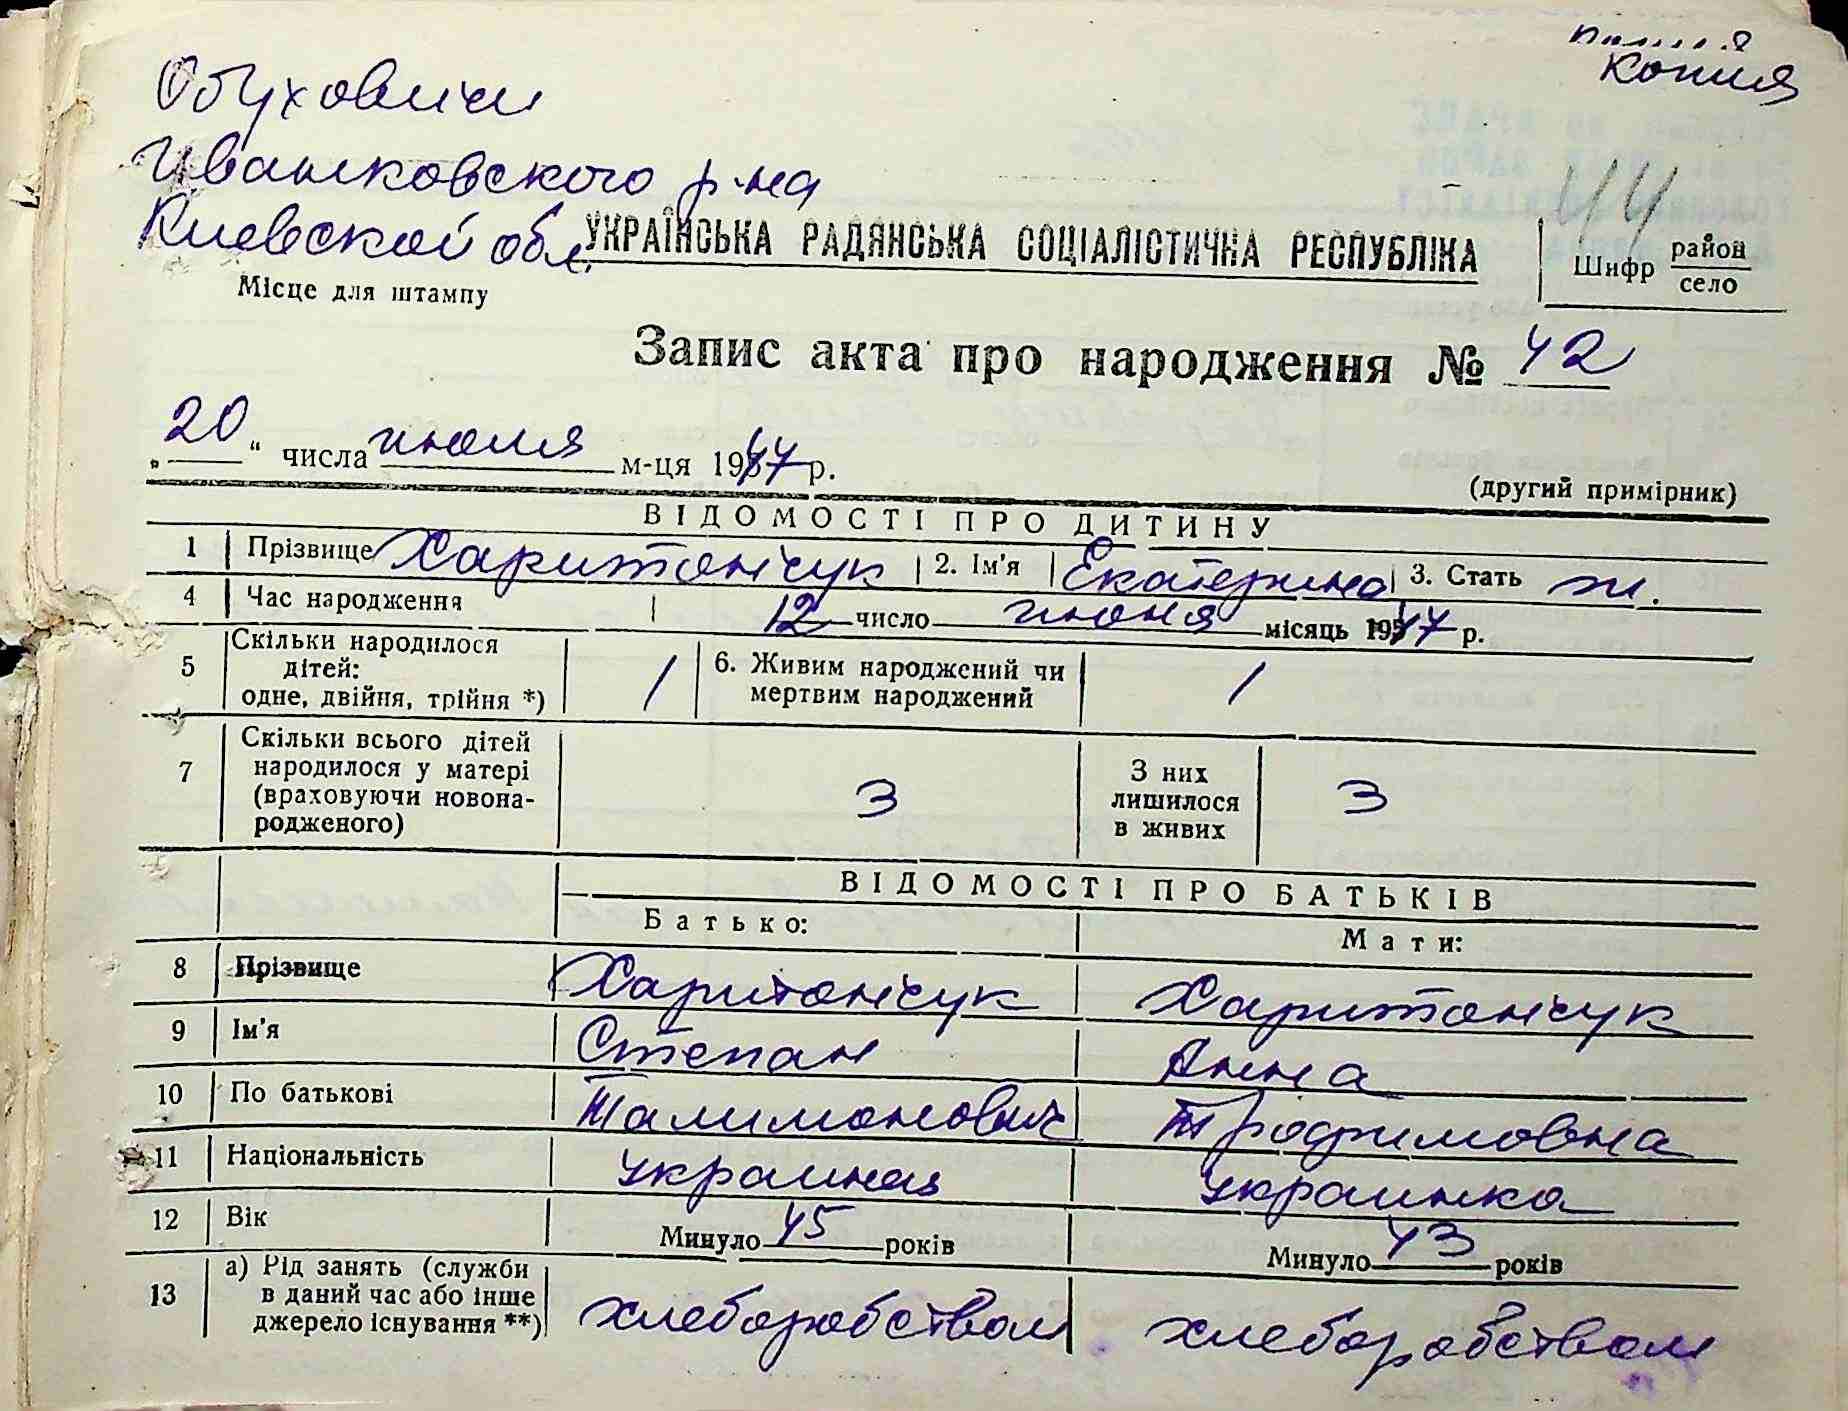 Копия
Обуховичи
Иванковского р-на
Киевской обл.
УКРАЇНСЬКА РАДЯНСЬКА СОЦІАЛІСТИЧНА РЕСПУБЛІКА
Шифр район
село
Місце для штампу
Запис акта про народження № 42
„20“ числа июля м-ця 1947 р.
(другий примірник)
ВІДОМОСТІ ПРО ДИТИНУ
1 Прізвище Харитончук 2. Ім'я Екатерина 3. Стать ж.
4 Час народження 12 число июня місяць 1947 р.
5 Скільки народилося дітей: одне, двійня, трійня *) 1 6. Живим народжений чи мертвим народжений 1
7 Скільки всього дітей народилося у матері (враховуючи новонародженого) 3 З них лишилося в живих 3
ВІДОМОСТІ ПРО БАТЬКІВ
Батько: Мати:
8 Прізвище Харитончук Харитончук
9 Ім'я Степан Анна
10 По батькові Талимонович Трофимовна
11 Національність украинец украинка
12 Вік Минуло 45 років Минуло 43 років
13 а) Рід занять (служби в даний час або інше джерело існування **) хлеборобством хлеборобством